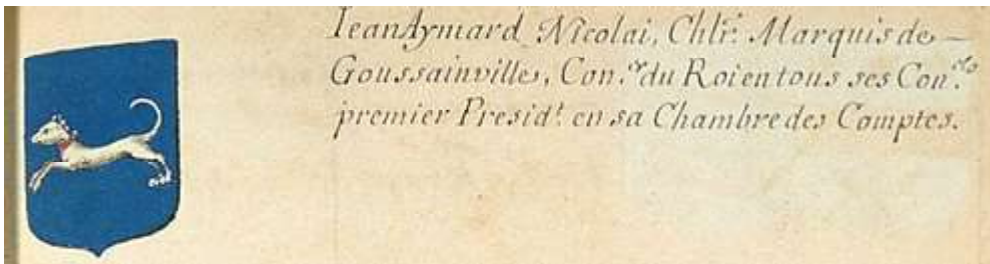 IeanAymard Nicolai, Chlr. Marquis de
Goussainville, Con.er du Roi en tous ses Con.els
premier Presid.t en sa Chambre des Comptes.